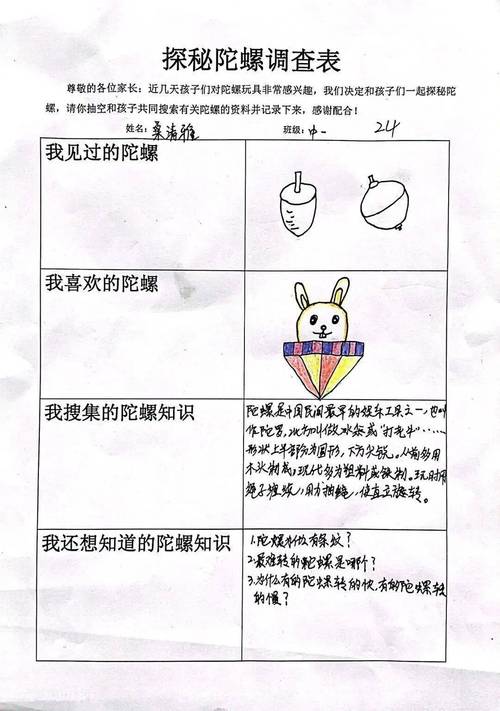 探秘陀螺调查表
尊敬的各位家长：近几天孩子们对陀螺玩具非常感兴趣，我们决定和孩子们一起探秘陀
螺，请你抽空和孩子共同搜索有关陀螺的资料并记录下来，感谢配合！
姓名：桑清雅 班级：中一 24
我见过的陀螺
我喜欢的陀螺
我搜集的陀螺知识
陀螺是中国民间最早的娱乐工具之一，也叫
作陀罗，北方叫做冰条或"打老牛"……
形状上半部分为圆形，下方尖锐。从前多用
木头制成，现代多为塑料或铁制。玩时用
绳子缠绕，用力抽绳，使直立旋转。
我还想知道的陀螺知识
1.陀螺为什么有条纹？
2.最难转的陀螺是哪个？
3.为什么有的陀螺转的快，有的陀螺转
的慢？